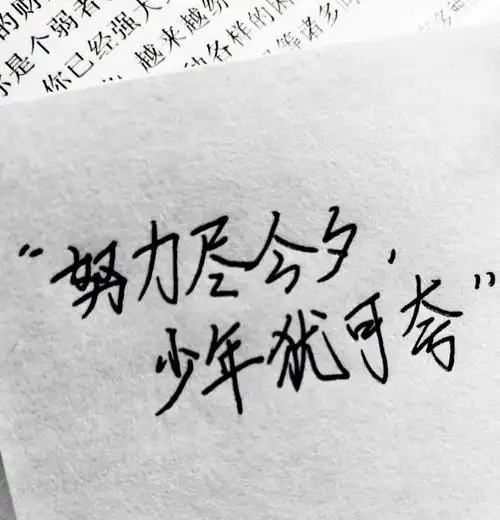 的财
是个弱者
你已经强大
越来越
各样的困
等诸多问
“努力尽今夕,
少年犹可夸”